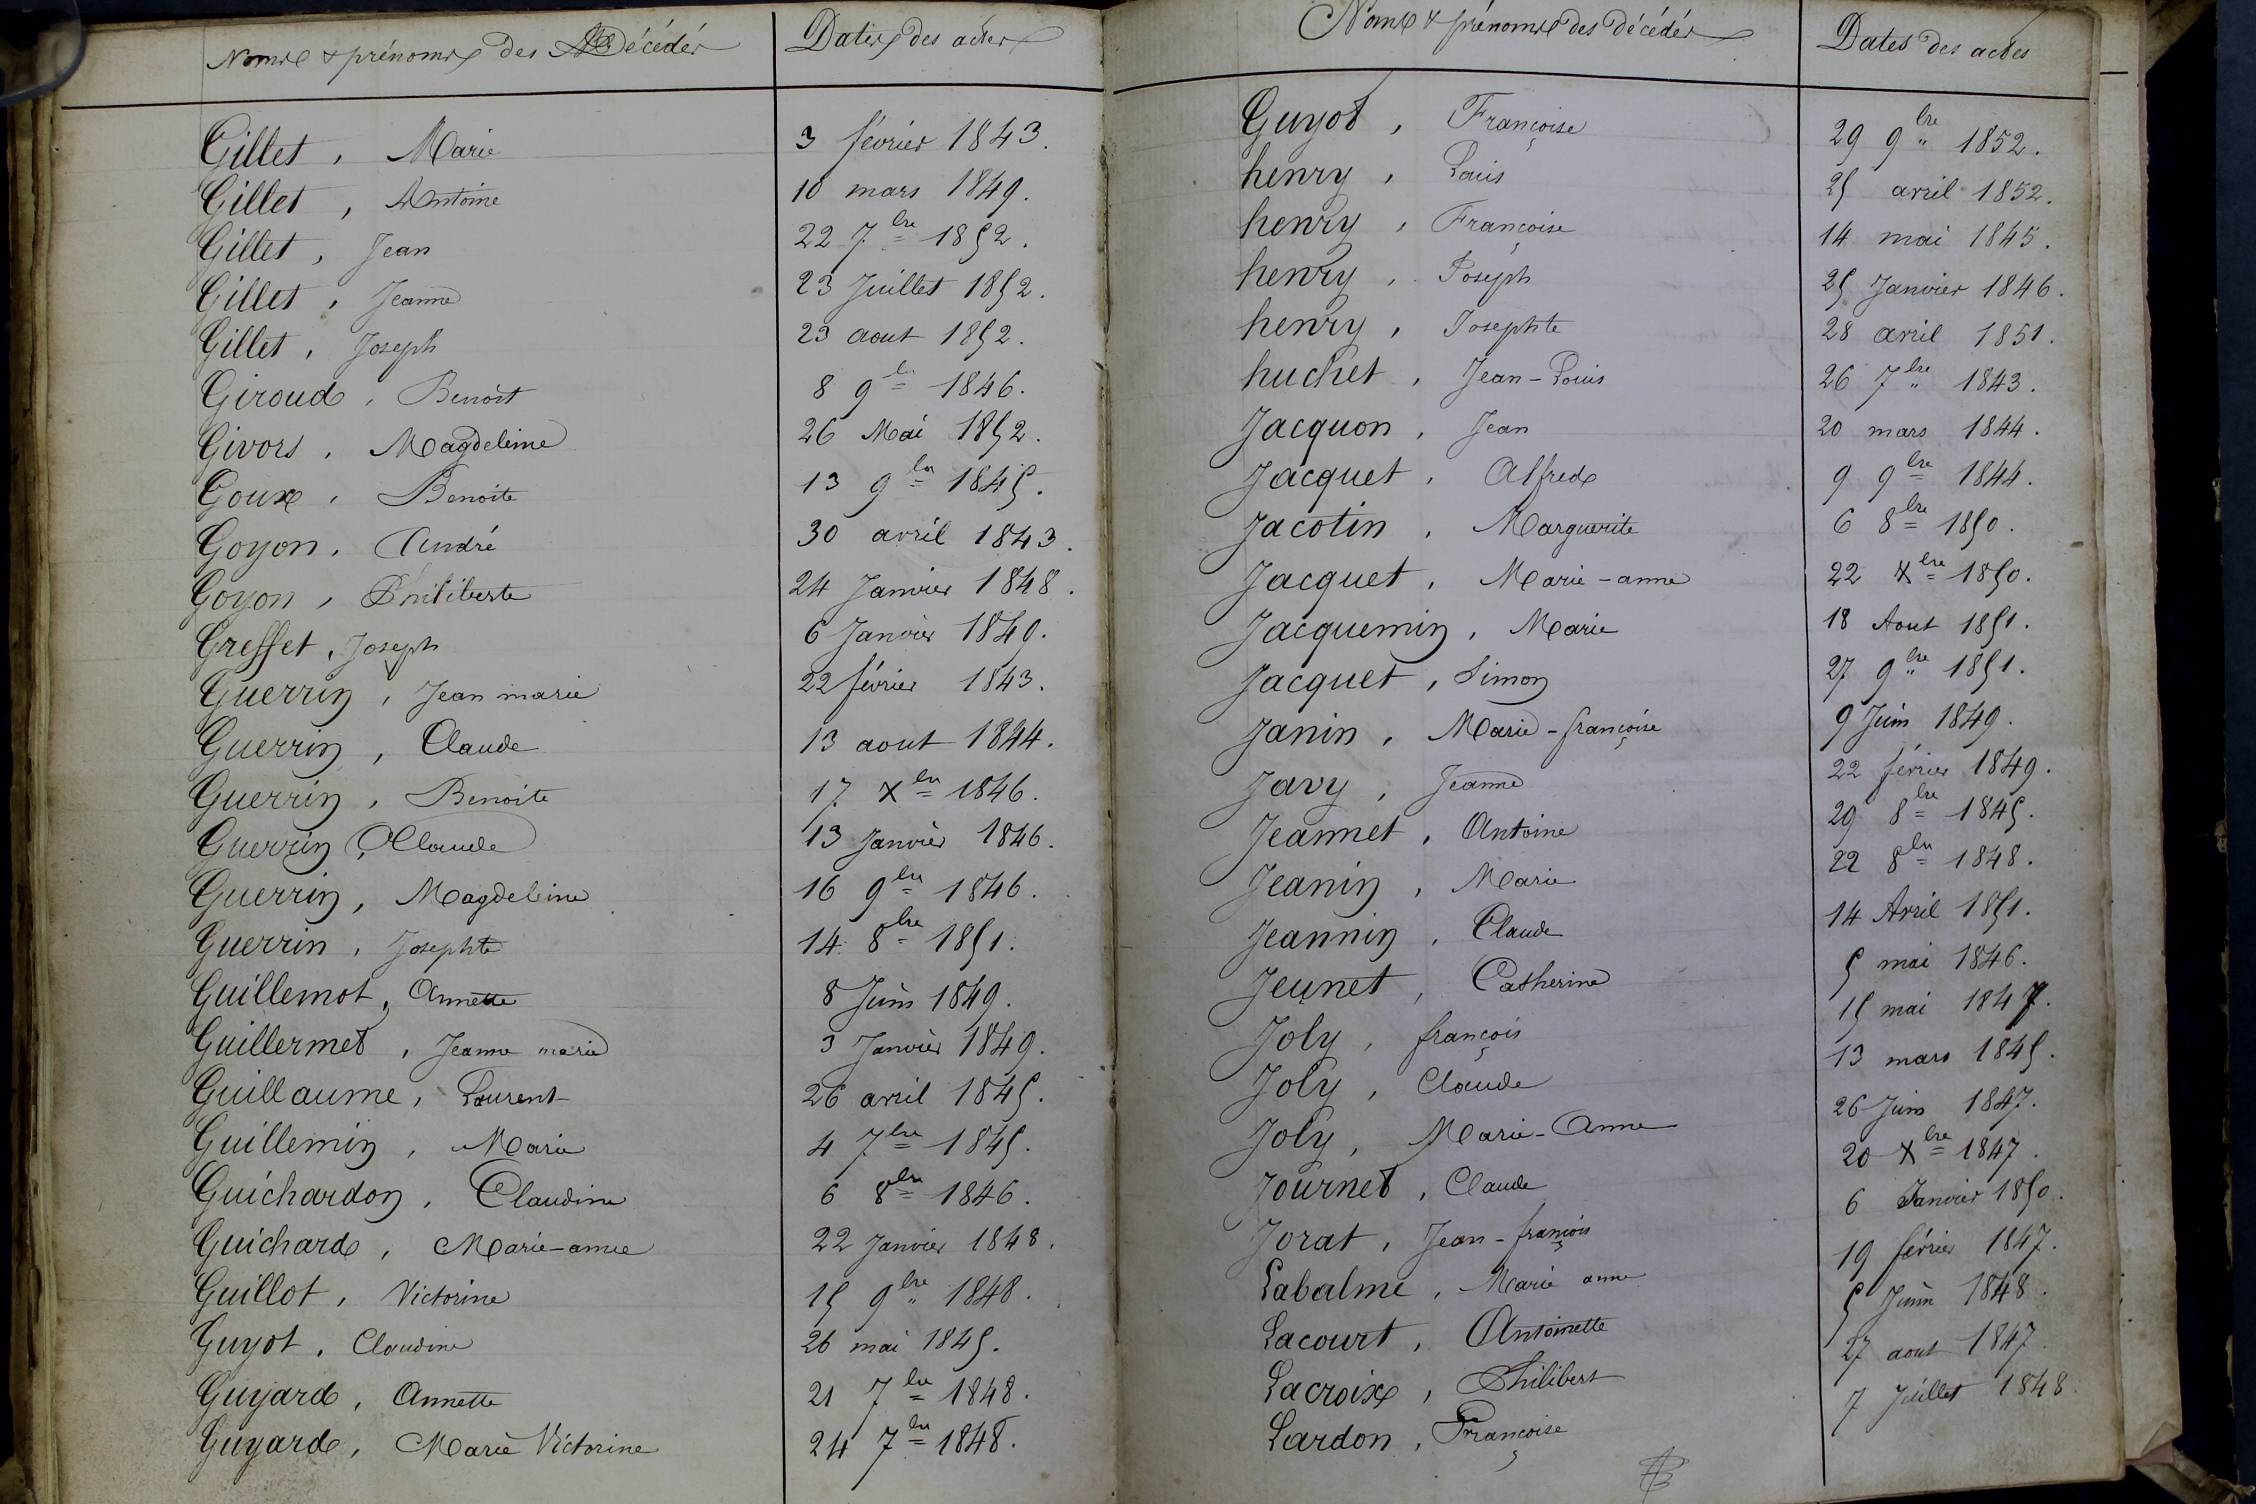 Noms & prénoms des Décédés Dates des actes
Gillet, Marie 3 février 1843.
Gillet, Antoine 10 mars 1849.
Gillet, Jean 22 7bre 1852.
Gillet, Jeanne 23 Juillet 1852.
Gillet, Joseph 23 aout 1852.
Giroud, Benoit 8 9bre 1846.
Givors, Magdeleine 26 Mai 1852.
Goux, Benoite 13 9bre 1845.
Goyon, André 30 avril 1843.
Goyon, Philiberte 24 Janvier 1848.
Greffet, Joseph 6 Janvier 1849.
Guerrin, Jean marie 22 février 1843.
Guerrin, Claude 13 aout 1844.
Guerrin, Benoite 17 Xbre 1846.
Guerrin, Claude 13 Janvier 1846.
Guerrin, Magdeleine 16 9bre 1846.
Guerrin, Josephte 14 8bre 1851.
Guillemot, Annette 8 Juin 1849.
Guillermet, Jeanne marie 3 Janvier 1849.
Guillaume, Laurent 26 avril 1845.
Guillemin, Marie 4 7bre 1845.
Guichardon, Claudine 6 8bre 1846.
Guichard, Marie-anne 22 Janvier 1848.
Guillot, Victorine 15 9bre 1848.
Guyot, Claudine 26 mai 1845.
Guyard, Annette 21 7bre 1848.
Guyard, Marie Victorine 24 7bre 1848.
Noms & prénoms des décédés Dates des actes
Guyot, Françoise 29 9bre 1852.
henry, Louis 25 avril 1852.
henry, Françoise 14 mai 1845.
henry, Joseph 25 Janvier 1846.
henry, Josephte 28 avril 1851.
huchet, Jean-Louis 26 7bre 1843.
Jacquon, Jean 20 mars 1844.
Jacquet, Alfred 9 9bre 1844.
Jacotin, Marguerite 6 8bre 1850.
Jacquet, Marie-anne 22 Xbre 1850.
Jacquemin, Marie 18 Aout 1851.
Jacquet, Simon 27 9bre 1851.
Janin, Marie-françoise 9 Juin 1849.
Javy, Jeanne 22 février 1849.
Jeannet, Antoine 29 8bre 1845.
Jeanin, Marie 22 8bre 1848.
Jeannin, Claude 14 Avril 1851.
Jeunet, Catherine 5 mai 1846.
Joly, françois 15 mai 1847.
Joly, Claude 13 mars 1845.
Joly, Marie-Anne 26 Juin 1847.
Journet, Claude 20 Xbre 1847.
Jorat, Jean-françois 6 Janvier 1850.
Labalme, Marie anne 19 février 1847.
Lacourt, Antoinette 5 Juin 1848.
Lacroix, Philibert 27 aout 1847.
Lardon, Françoise 7 Juillet 1848